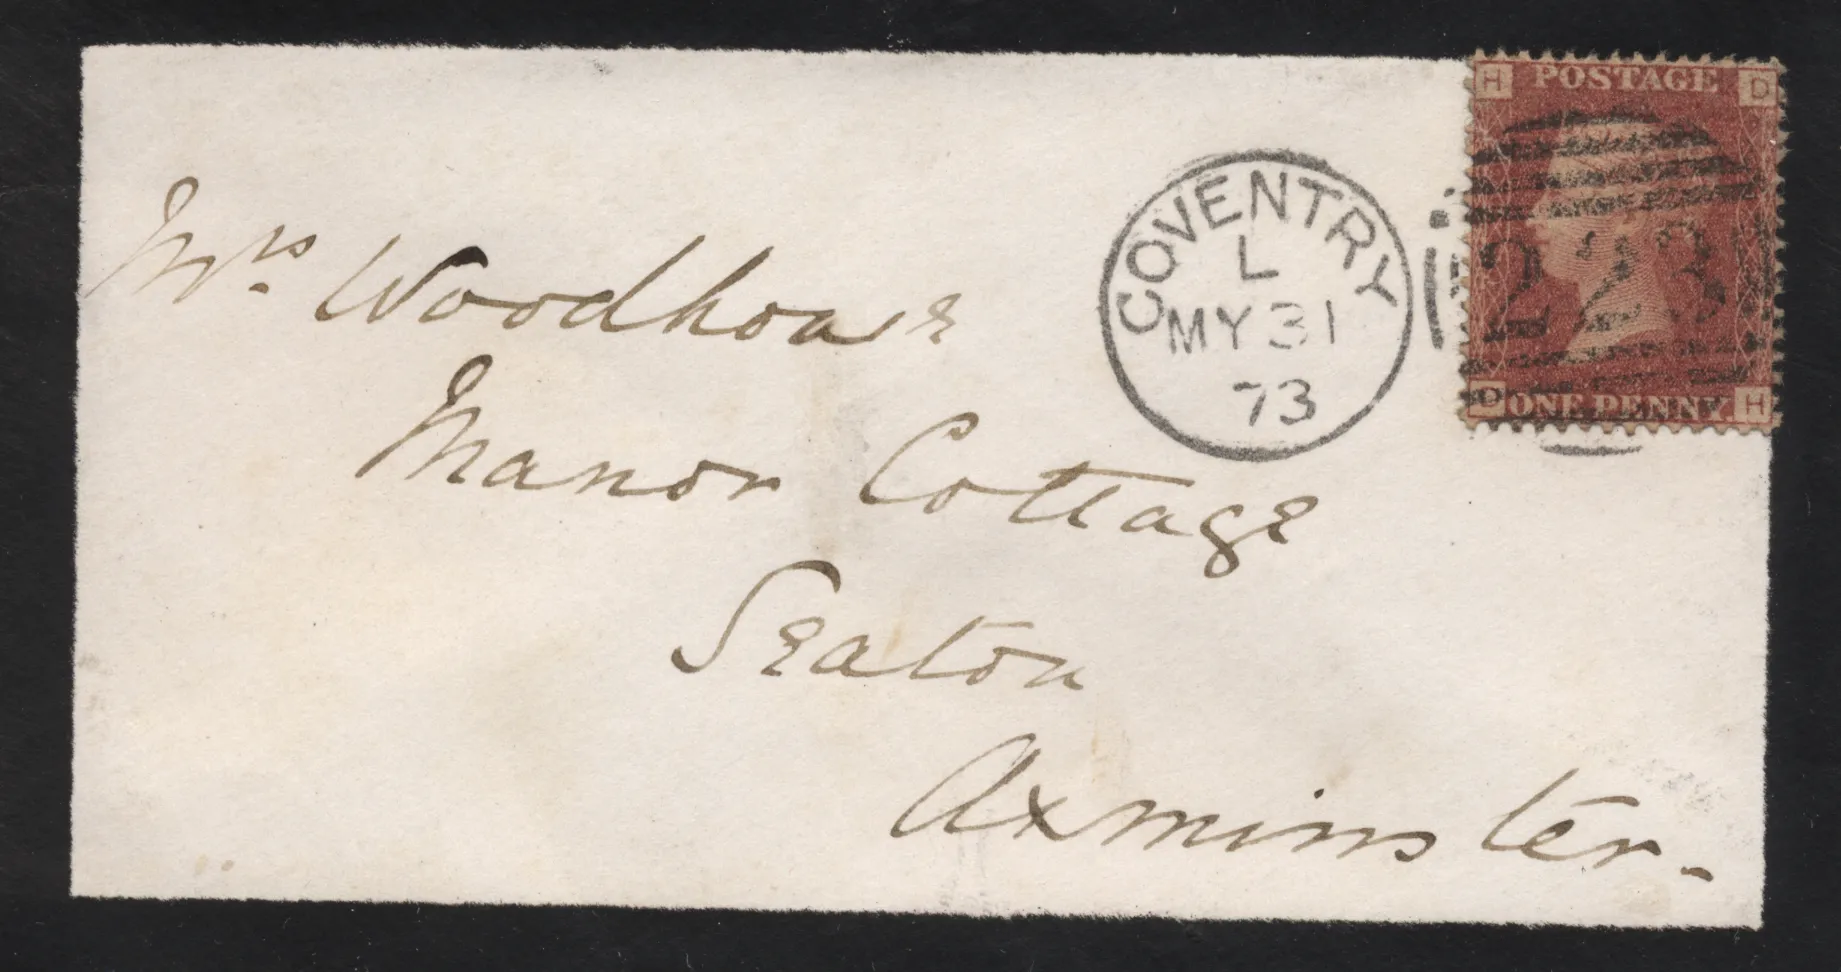 H POSTAGE D
COVENTRY
L
MY 31
73
223
D ONE PENNY H
Mrs. Woodhouse
Manor Cottage
Seaton
Axminster.